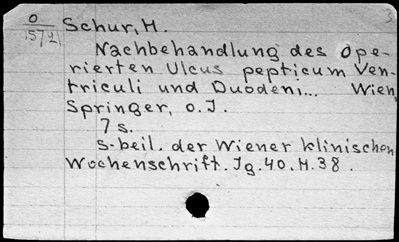 O
15721
Schur, H.
Nachbehandlung des ope-
rierten Ulcus pepticum Ven-
triculi und Duodeni... Wien,
Springer, o.J.
7 s.
S-beil. der Wiener klinischen
Wochenschrift. Jg. 40. H. 38.